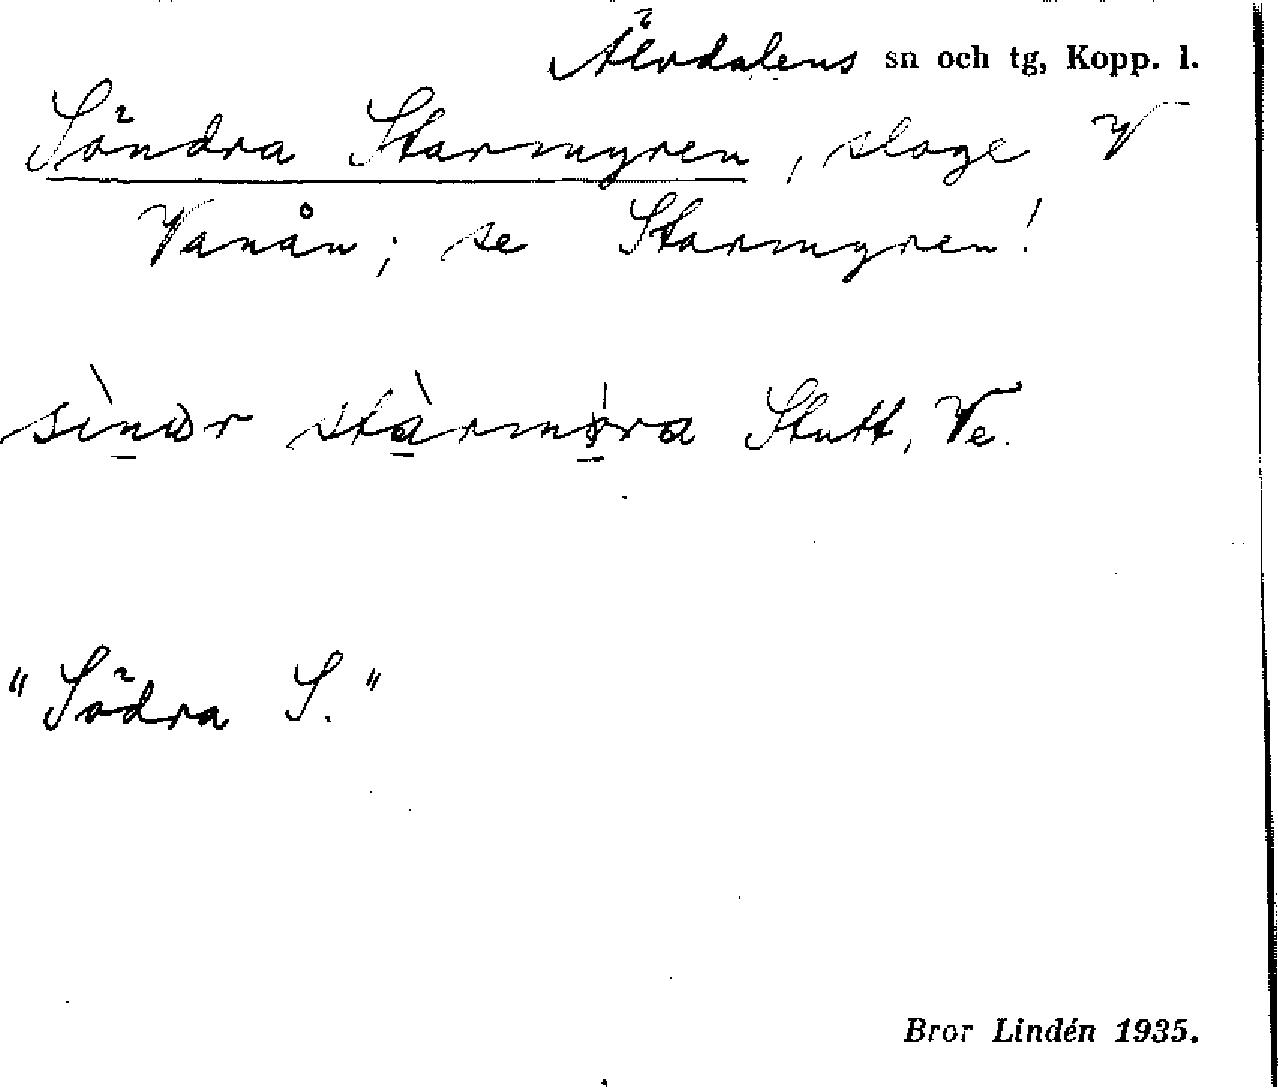 Älvdalens sn och tg, Kopp. l.
Söndra Starmyren, sloge V
Vanån; se Starmyren!
Stutt, Ve.
"Södra S."
Bror Lindén 1935.